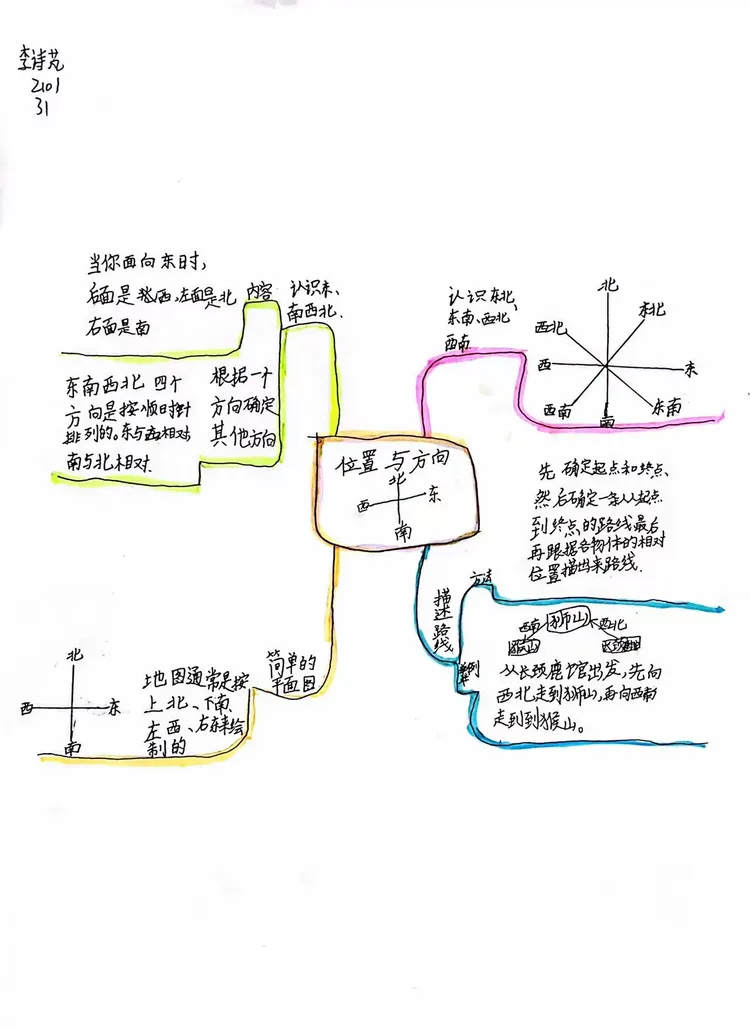 李诗芃
2101
31
当你面向东时,
后面是西,左面是北
右面是南
内容
认识东、
南西北.
东南西北 四个
方向是按顺时针
排列的。东与西相对
南与北相对.
根据一个
方向确定
其他方向
认识东北,
东南、西北,
西南
北
西北
东北
西
东
西南
南
东南
位置与方向
北
西
东
南
先 确定起点和终点、
然后确定一条从起点
到终点的路线最后
再跟据各物体的相对
位置描出来路线.
描述路线
方法
西南
狮山
西北
猴山
从长颈鹿馆出发,先向
西北走到狮山,再向西南
走到到猴山。
简单的
平面图
地图通常是按
上北、下南、
左西、右东来绘
制的
北
西
东
南